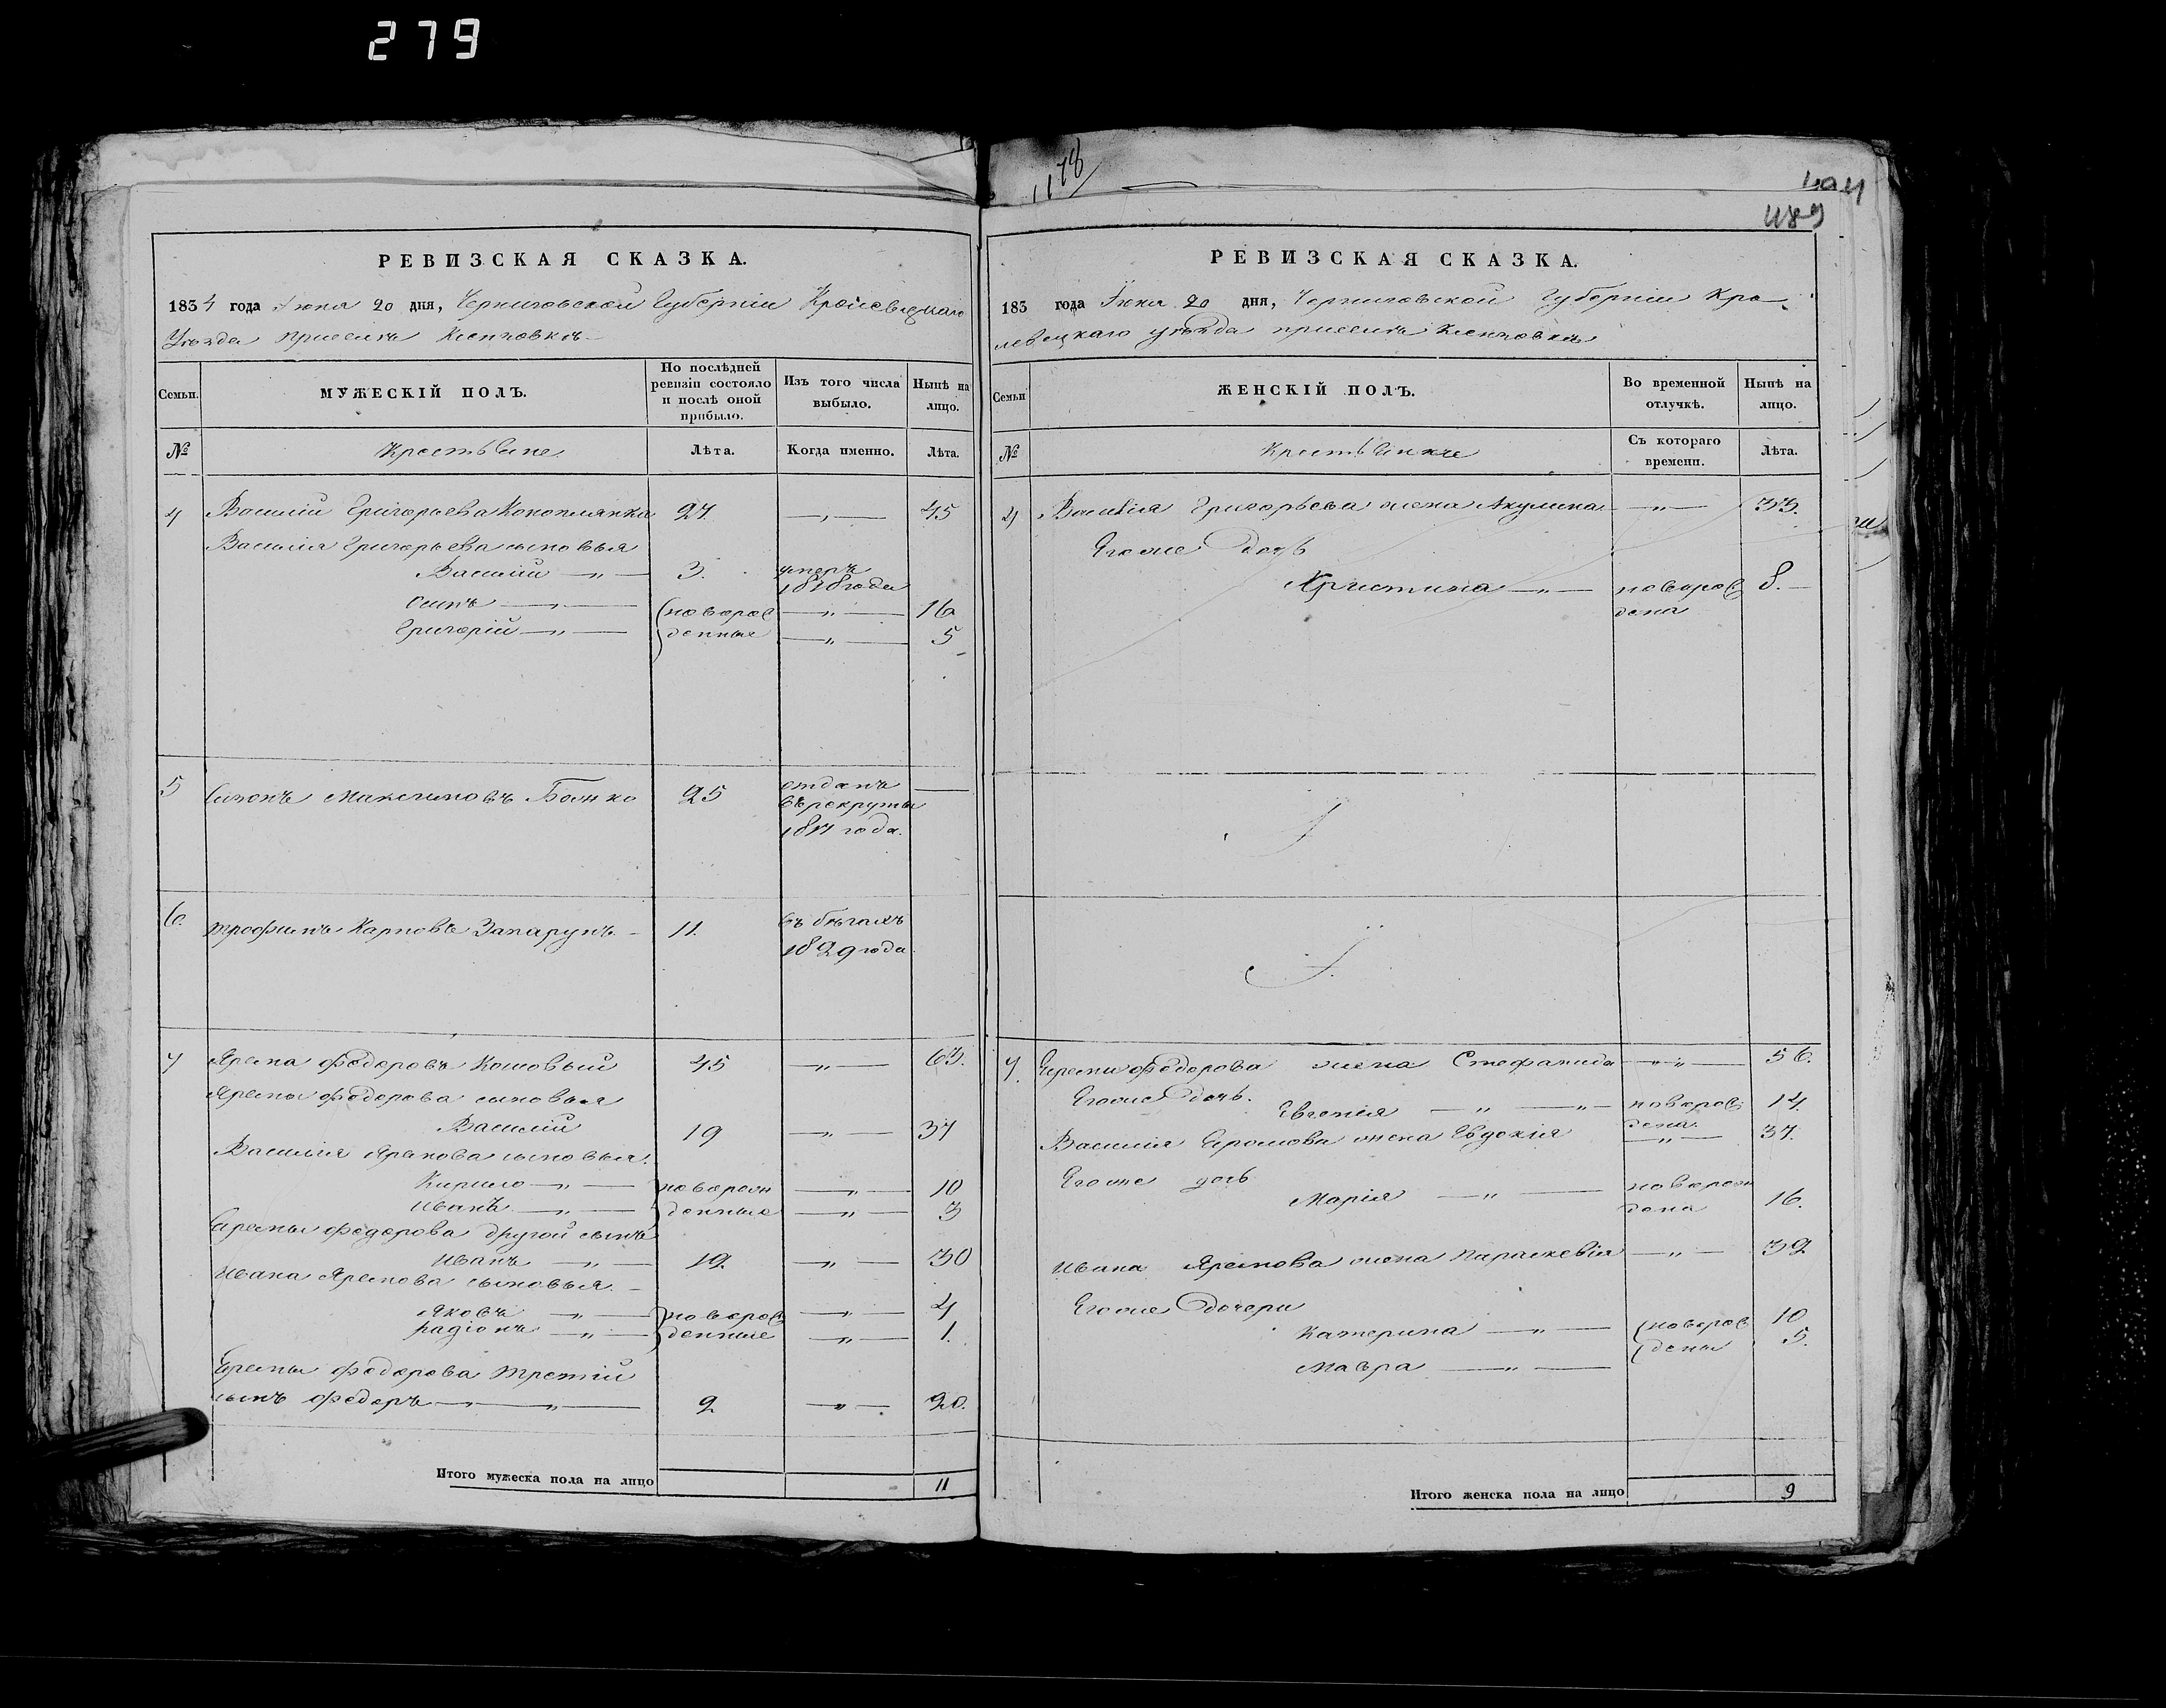 279
1178
489
РЕВИЗСКАЯ СКАЗКА.
1834 года Іюня 20 дня, Черниговской Губерніи Кролевецкаго
Уѣзда приселкѣ
Семьи.
МУЖЕСКІЙ ПОЛЪ.
По послѣдней ревизіи состояло и послѣ оной прибыло.
Изъ того числа выбыло.
Нынѣ на лицо.
№
Крестьяне
Лѣта.
Когда именно.
Лѣта.
4 Василій Григорьевъ Коноплянка 27. —„— 45
Василія Григорьева сыновья
Василій —„— 3. умеръ 1818 года
—„— (новорож —„— 16
Григорій —„— денные —„— 5
5 Максимовъ Божко 25 отданъ —
въ рекруты
года.
6. Трофимъ Карповъ 11. въ бѣгахъ
1829 года
7 Ярема Федоровъ Кошовый 45 —„— 63.
Яремы Федорова сыновья
Василій 19 —„— 37
Василія Яремова сыновья.
Кирило —„— новорож —„— 10
Иванъ —„— денные —„— 3
Яремы Федорова другой сынъ
Иванъ —„— 12. —„— 30
Ивана Яремова сыновья.
Яковъ —„— новорож —„— 4
Радіонъ —„— денные —„— 1.
Яремы Федорова третій
сынъ Федоръ —„— 2 —„— 20.
Итого мужеска пола на лицо 11
РЕВИЗСКАЯ СКАЗКА.
183 года Іюня 20 дня, Черниговской Губерніи Кро-
левецкаго уѣзда приселкѣ
Семьи
ЖЕНСКІЙ ПОЛЪ.
Во временной отлучкѣ.
Нынѣ на лицо.
№
Крестьянки
Съ котораго времени.
Лѣта.
4 Василія Григорьева жена Акулина —„— 33.
Егоже дочь
Христина —„— новорож 8.
дена
7. Яремы Федорова жена Стефанида —„— 56.
Егоже дочь.
Евгенія —„— —„— новорож 14.
дена
Василія Яремова жена Евдокія —„— 37.
Егоже дочь
Марія —„— новорож
дена 16.
Ивана Яремова жена Параскевія —„— 32
Егоже дочери
Катерина —„— (новорож 10
(дены 5.
Мавра —„—
Итого женска пола на лицо 9